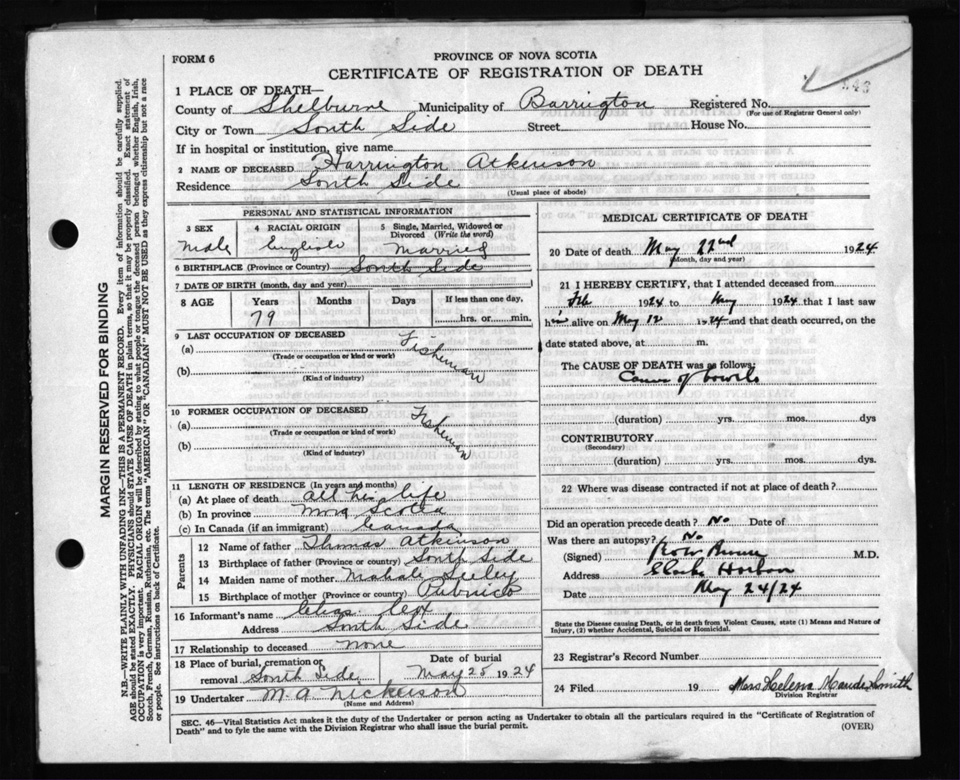 FORM 6
PROVINCE OF NOVA SCOTIA
CERTIFICATE OF REGISTRATION OF DEATH
1 PLACE OF DEATH—
County of Shelburne Municipality of Barrington Registered No.
(For use of Registrar General only)
City or Town South Side Street House No.
If in hospital or institution, give name
2 NAME OF DECEASED Harrington Atkinson
Residence South Side
(Usual place of abode)
PERSONAL AND STATISTICAL INFORMATION
3 SEX 4 RACIAL ORIGIN 5 Single, Married, Widowed or Divorced (Write the word)
Male English Married
6 BIRTHPLACE (Province or Country) South Side
7 DATE OF BIRTH (month, day and year)
8 AGE Years Months Days If less than one day,
79 hrs. or min.
9 LAST OCCUPATION OF DECEASED
(a) Fisherman
(Trade or occupation or kind or work)
(b)
(Kind of industry)
10 FORMER OCCUPATION OF DECEASED
(a) Fisherman
(Trade or occupation or kind of work)
(b)
(Kind of industry)
11 LENGTH OF RESIDENCE (In years and months)
(a) At place of death all his life
(b) In province Nova Scotia
(c) In Canada (if an immigrant) Canada
Parents
12 Name of father Thomas Atkinson
13 Birthplace of father (Province or country) South Side
14 Maiden name of mother Mahala Seeley
15 Birthplace of mother (Province or country) Pubnico
16 Informant's name
Address South Side
17 Relationship to deceased none
18 Place of burial, cremation or removal South Side Date of burial May 25 1924
19 Undertaker M. A. Nickerson
(Name and Address)
MEDICAL CERTIFICATE OF DEATH
20 Date of death May 22nd 1924
(Month, day and year)
21 I HEREBY CERTIFY, that I attended deceased from
Feb 1924 to May 1924 that I last saw
him alive on May 12 1924 and that death occurred, on the
date stated above, at m.
The CAUSE OF DEATH was as follows:
of bowels
(duration) yrs. mos. dys
CONTRIBUTORY
(Secondary)
(duration) yrs. mos. dys.
22 Where was disease contracted if not at place of death?
Did an operation precede death? No Date of
Was there an autopsy? No
(Signed) M.D.
Address Clarks Harbor
Date May 24/24
State the Disease causing Death, or in death from Violent Causes, state (1) Means and Nature of
Injury, (2) whether Accidental, Suicidal or Homicidal.
23 Registrar's Record Number
24 Filed 19 Helena Maude Smith
Division Registrar
SEC. 46—Vital Statistics Act makes it the duty of the Undertaker or person acting as Undertaker to obtain all the particulars required in the "Certificate of Registration of
Death" and to fyle the same with the Division Registrar who shall issue the burial permit.
(OVER)
MARGIN RESERVED FOR BINDING
N.B.—WRITE PLAINLY WITH UNFADING INK—THIS IS A PERMANENT RECORD. Every item of information should be carefully supplied.
AGE should be stated EXACTLY. PHYSICIANS should STATE CAUSE OF DEATH in plain terms, so that it may be properly classified. Exact statement of
OCCUPATION is very important. RACIAL ORIGIN will be described by stating to what people or tongue the deceased person belonged whether English, Irish,
Scotch, French, German, Russian, Ruthenian, etc. The terms "AMERICAN" OR "CANADIAN" MUST NOT BE USED as they express citizenship but not a race
or people. See instructions on back of Certificate.